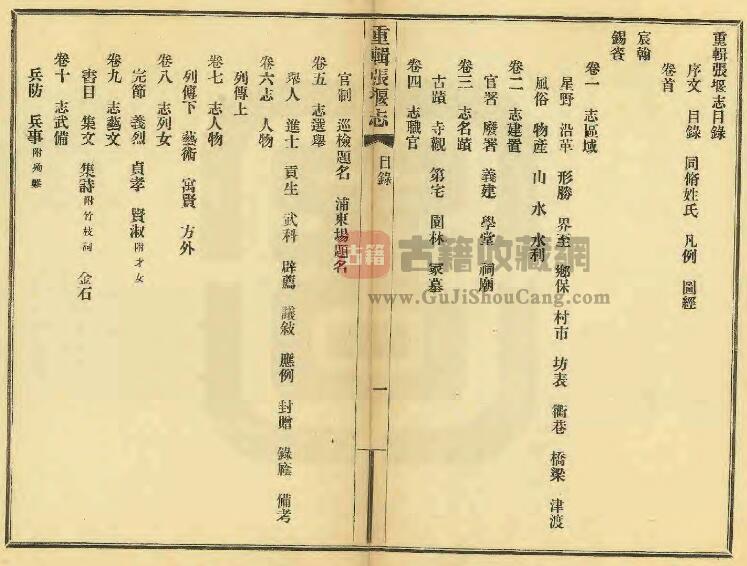 重輯張堰志目錄
序文 目錄 同脩姓氏 凡例 圖經
卷首
宸翰
錫賚
卷一 志區域
星野 沿革 形勝 界至 鄉保 村市 坊表 衢巷 橋梁 津渡
風俗 物產 山 水 水利
卷二 志建置
官署 廢署 義建 學堂 祠廟
卷三 志名蹟
古蹟 寺觀 第宅 園林 冢墓
卷四 志職官
重輯張堰志
目錄
一
官制 巡檢題名 浦東場題名
卷五 志選舉
舉人 進士 貢生 武科 辟薦 議敘 應例 封贈 錄廕 備考
卷六志 人物
列傳上
卷七 志人物
列傳下 藝術 寓賢 方外
卷八 志列女
完節 義烈 貞孝 賢淑附才女
卷九 志藝文
書目 集文 集詩附竹枝詞 金石
卷十 志武備
兵防 兵事附殉難
古籍
古籍收藏網
www.GuJiShouCang.com